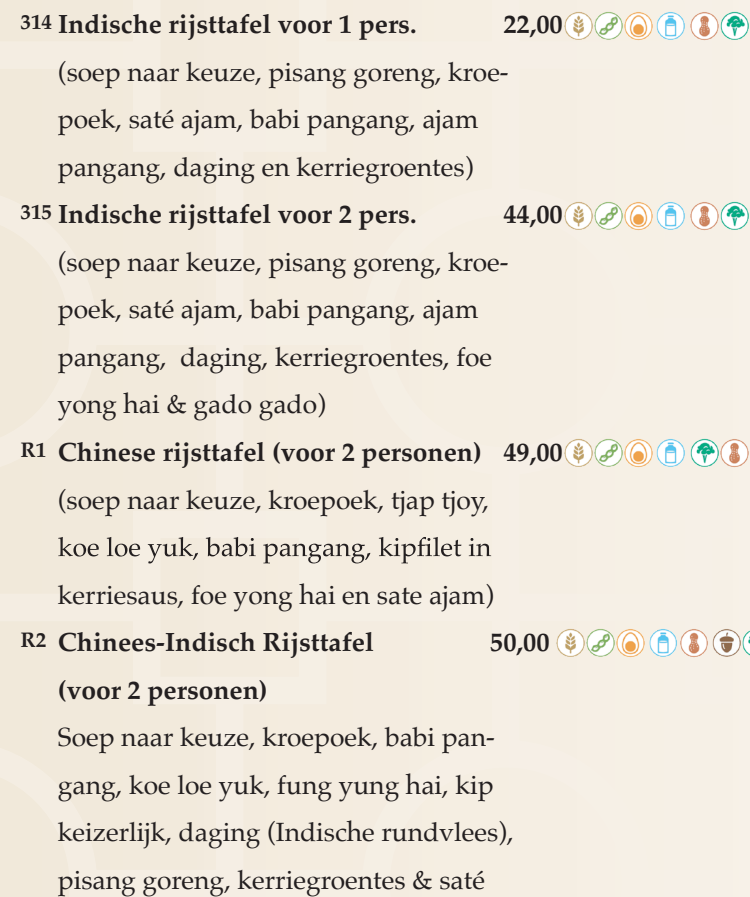 314 Indische rijsttafel voor 1 pers. 22,00
(soep naar keuze, pisang goreng, kroe-
poek, saté ajam, babi pangang, ajam
pangang, daging en kerriegroentes)
315 Indische rijsttafel voor 2 pers. 44,00
(soep naar keuze, pisang goreng, kroe-
poek, saté ajam, babi pangang, ajam
pangang, daging, kerriegroentes, foe
yong hai & gado gado)
R1 Chinese rijsttafel (voor 2 personen) 49,00
(soep naar keuze, kroepoek, tjap tjoy,
koe loe yuk, babi pangang, kipfilet in
kerriesaus, foe yong hai en sate ajam)
R2 Chinees-Indisch Rijsttafel 50,00
(voor 2 personen)
Soep naar keuze, kroepoek, babi pan-
gang, koe loe yuk, fung yung hai, kip
keizerlijk, daging (Indische rundvlees),
pisang goreng, kerriegroentes & saté